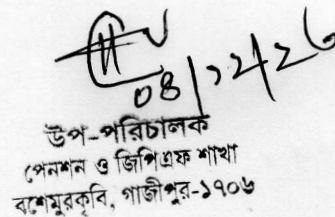 ০৪/১২/২৬
উপ-পরিচালক
পেনশন ও জিপিএফ শাখা
বশেমুরকৃবি, গাজীপুর-১৭০৬